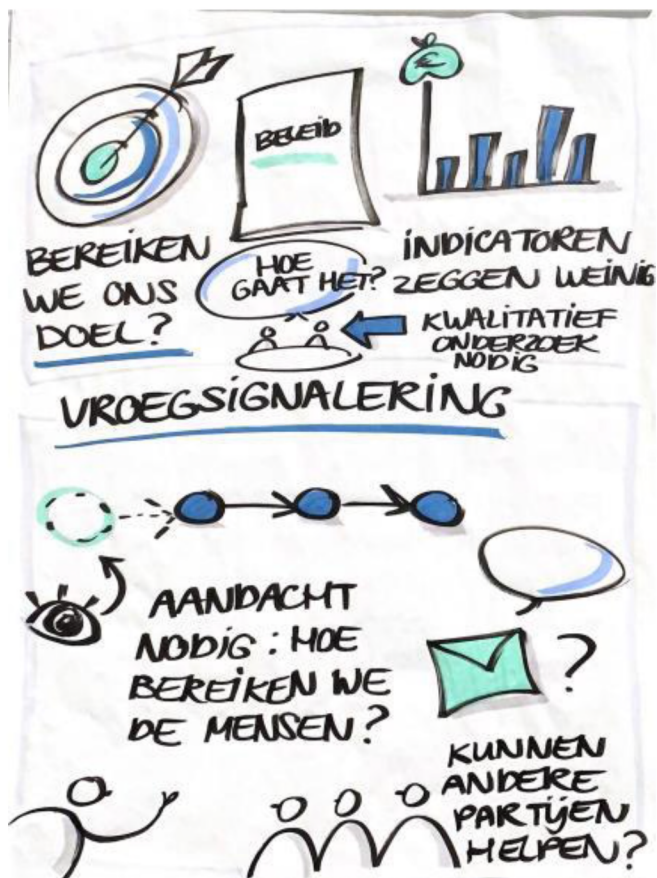 BELEID
€
BEREIKEN
WE ONS
DOEL?
HOE
GAAT HET?
INDICATOREN
ZEGGEN WEINIG
KWALITATIEF
ONDERZOEK
NODIG
VROEGSIGNALERING
AANDACHT
NODIG: HOE
BEREIKEN WE
DE MENSEN?
?
KUNNEN
ANDERE
PARTIJEN
HELPEN?